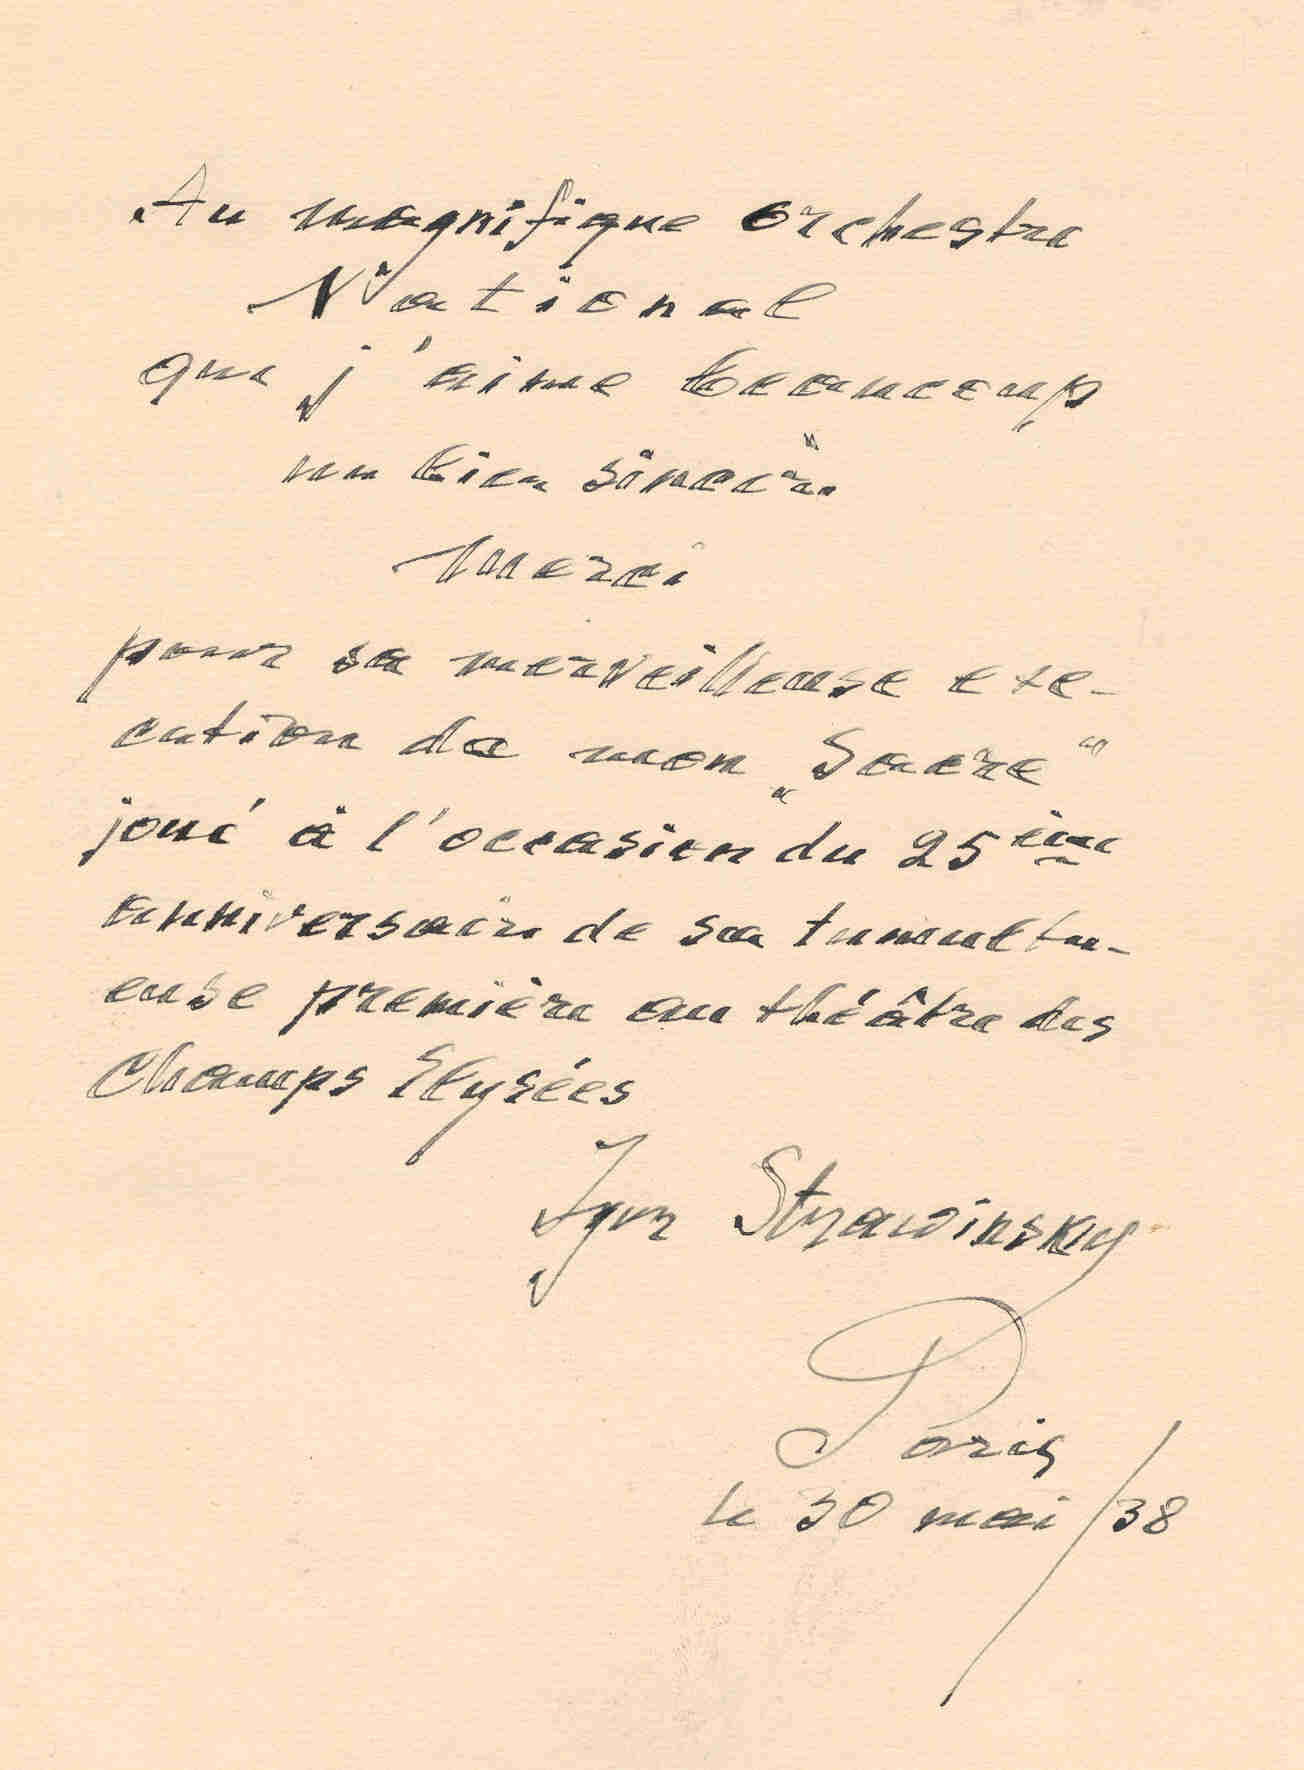 Au magnifique orchestre
National
que j'aime beaucoup
un bien sincère
merci
pour sa merveilleuse exe-
cution de mon „Sacre“
joué à l'occasion du 25ième
anniversaire de sa tumultu-
euse première au théâtre des
Champs Elysées
Igor Strawinsky
Paris
le 30 mai /38